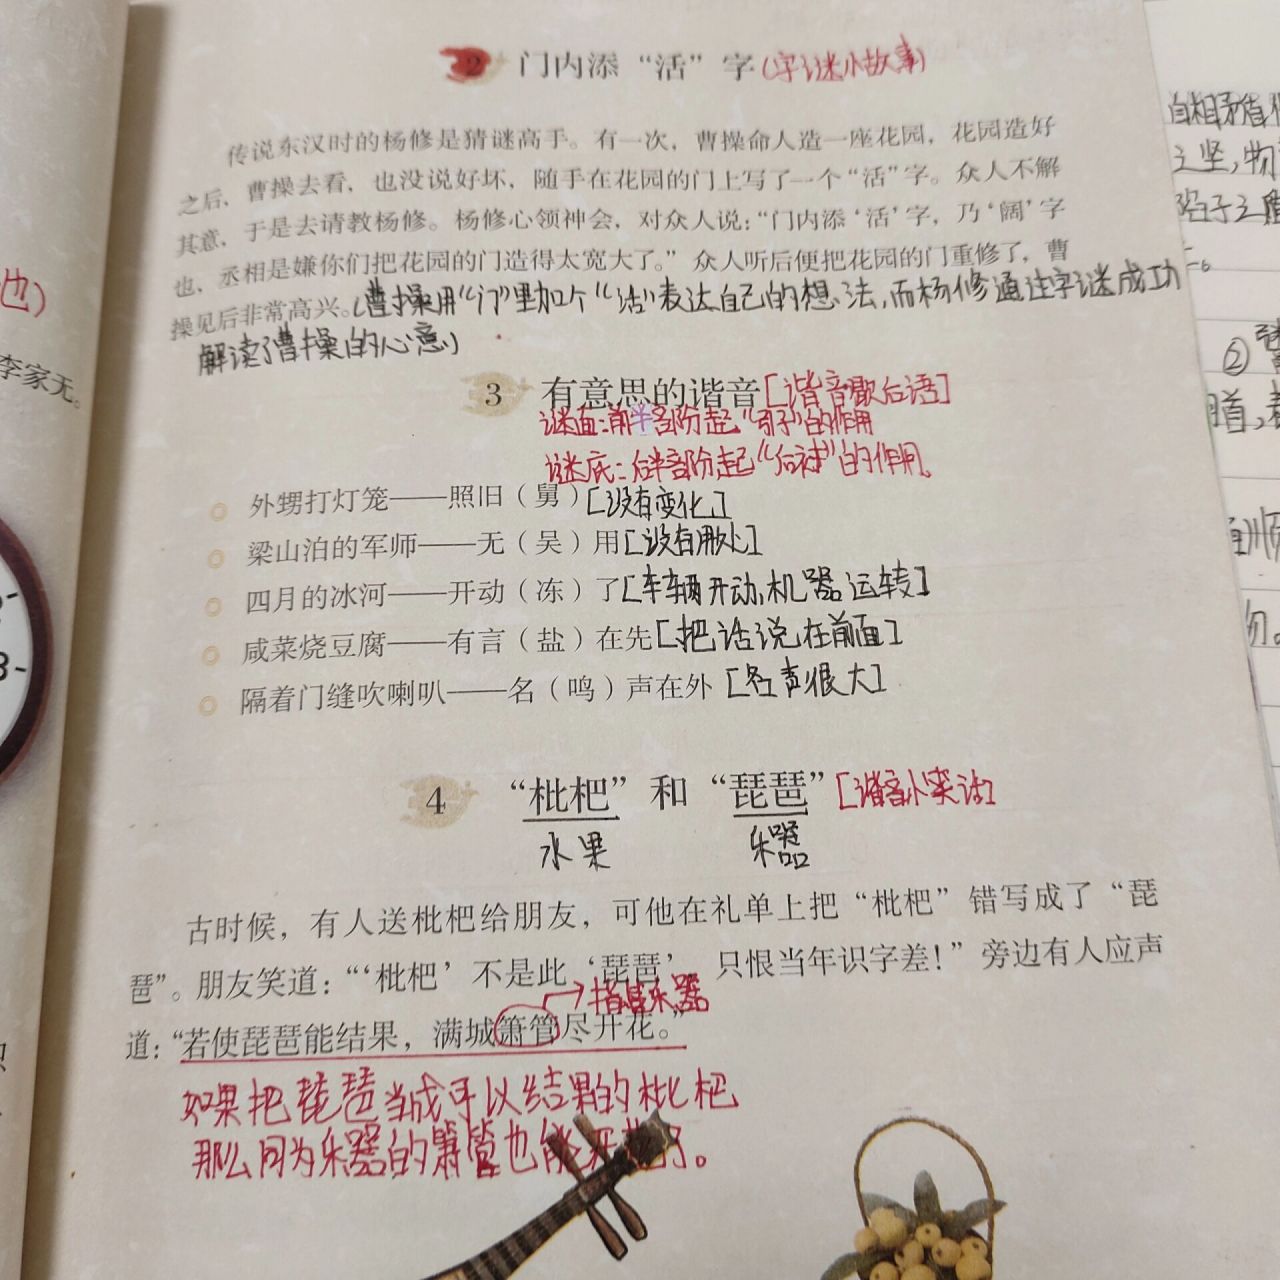 2 门内添“活”字(字谜小故事)
传说东汉时的杨修是猜谜高手。有一次，曹操命人造一座花园，花园造好
之后，曹操去看，也没说好坏，随手在花园的门上写了一个“活”字。众人不解
其意，于是去请教杨修。杨修心领神会，对众人说：“门内添‘活’字，乃‘阔’字
也，丞相是嫌你们把花园的门造得太宽大了。”众人听后便把花园的门重修了，曹
操见后非常高兴。(曹操用“门”里加个“活”表达自己的想法,而杨修通过字谜成功
解读了曹操的心意)
也)
李家无。
3 有意思的谐音[谐音歇后语]
谜面:前半部分起“引子”的作用
谜底:后半部分起“后衬”的作用。
外甥打灯笼——照旧（舅）[没有变化]
梁山泊的军师——无（吴）用[没有用处]
四月的冰河——开动（冻）了[车辆开动,机器运转]
咸菜烧豆腐——有言（盐）在先[把话说在前面]
隔着门缝吹喇叭——名（鸣）声在外[名声很大]
4 “枇杷”和“琵琶”[谐音小笑话]
水果 乐器
古时候，有人送枇杷给朋友，可他在礼单上把“枇杷”错写成了“琵
琶”。朋友笑道：“‘枇杷’不是此‘琵琶’，只恨当年识字差！”旁边有人应声
指乐器
道：“若使琵琶能结果，满城箫管尽开花。”
如果把琵琶当成可以结果的枇杷
那么同为乐器的箫管也能开花了。
自相矛盾
之坚,物
陷于之
②